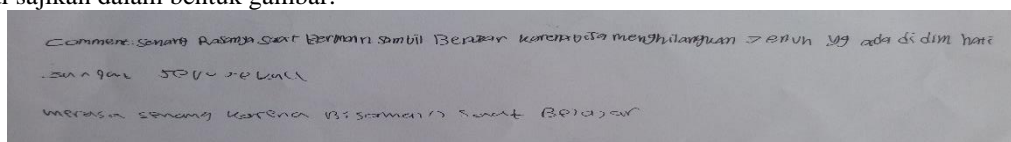 sajikan dalam bentuk gambar.
Comment: senang Rasanya saat Bermain sambil Belajar karena bisa menghilangkan Jenuh yg ada di dlm hati
sangat seru sekali
merasa senang karena Bisa main saat Belajar